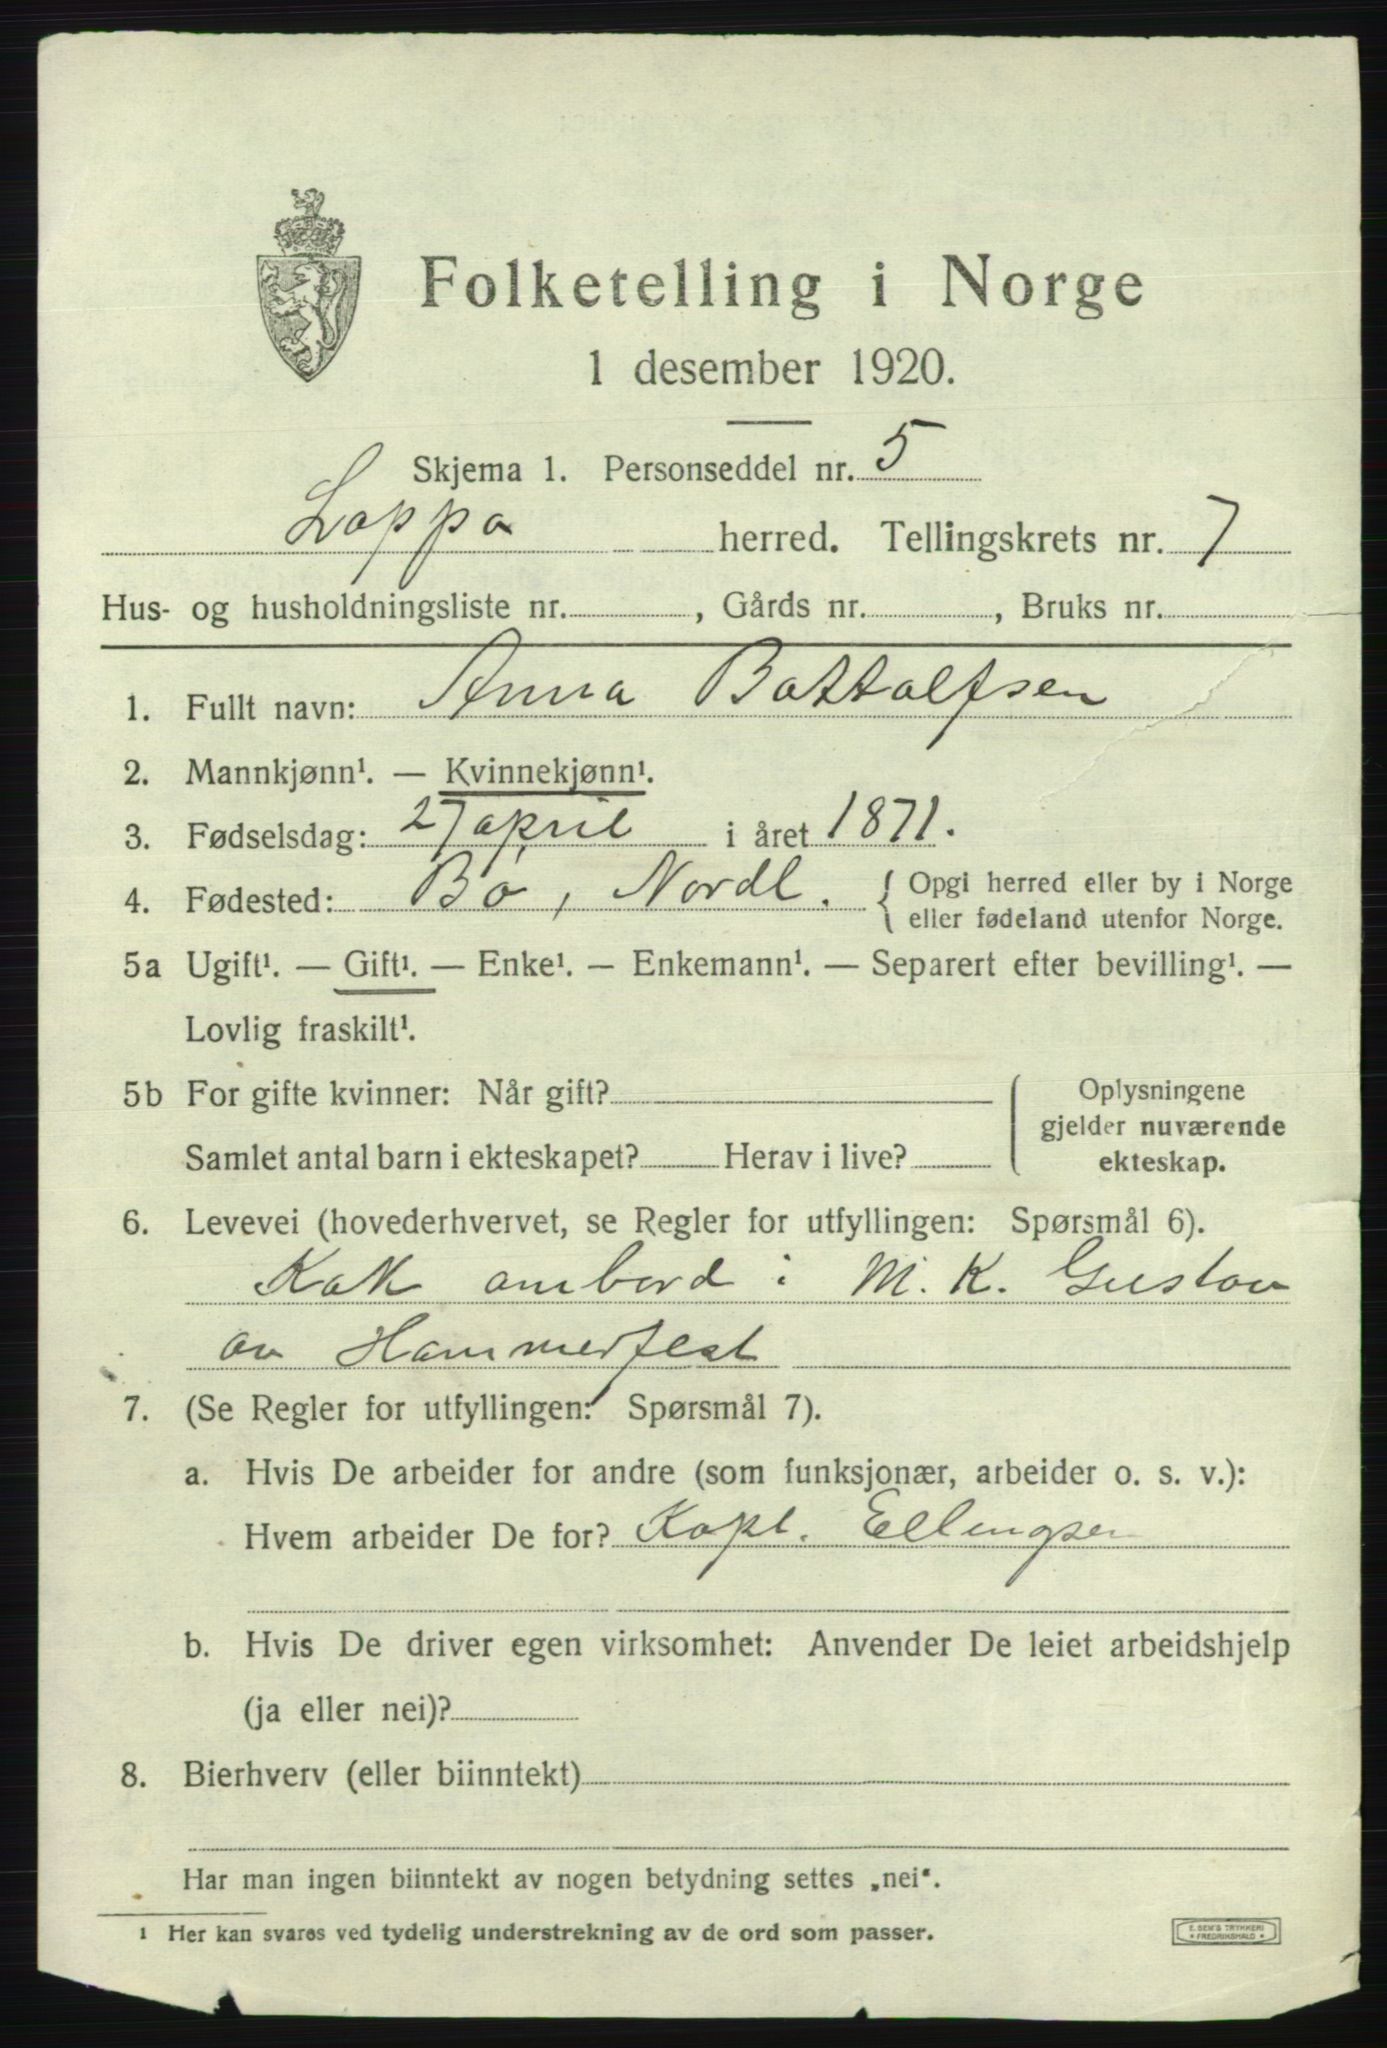 Folketelling i Norge
1 desember 1920.
Skjema 1. Personseddel nr. 5
Loppa herred. Tellingskrets nr. 7
Hus- og husholdningsliste nr. , Gårds nr. , Bruks nr.
1. Fullt navn: Anna Bottolfsen
2. Mannkjønn¹. — Kvinnekjønn¹.
3. Fødselsdag: 27 april i året 1871.
4. Fødested: Bø, Nordl. { Opgi herred eller by i Norge
eller fødeland utenfor Norge.
5a Ugift¹. — Gift¹. — Enke¹. — Enkemann¹. — Separert efter bevilling¹. —
Lovlig fraskilt¹.
5b For gifte kvinner: Når gift?
Samlet antal barn i ekteskapet? Herav i live?
Oplysningene
gjelder nuværende
ekteskap.
6. Levevei (hovederhvervet, se Regler for utfyllingen: Spørsmål 6).
Kok ombord i M. K. Gustav
av Hammerfest
7. (Se Regler for utfyllingen: Spørsmål 7).
a. Hvis De arbeider for andre (som funksjonær, arbeider o. s. v.):
Hvem arbeider De for? Kapt. Ellingsen
b. Hvis De driver egen virksomhet: Anvender De leiet arbeidshjelp
(ja eller nei)?
8. Bierhverv (eller biinntekt)
Har man ingen biinntekt av nogen betydning settes „nei“.
¹ Her kan svares ved tydelig understrekning av de ord som passer.
E. SEM'S TRYKKERI
* FREDRIKSHALD *